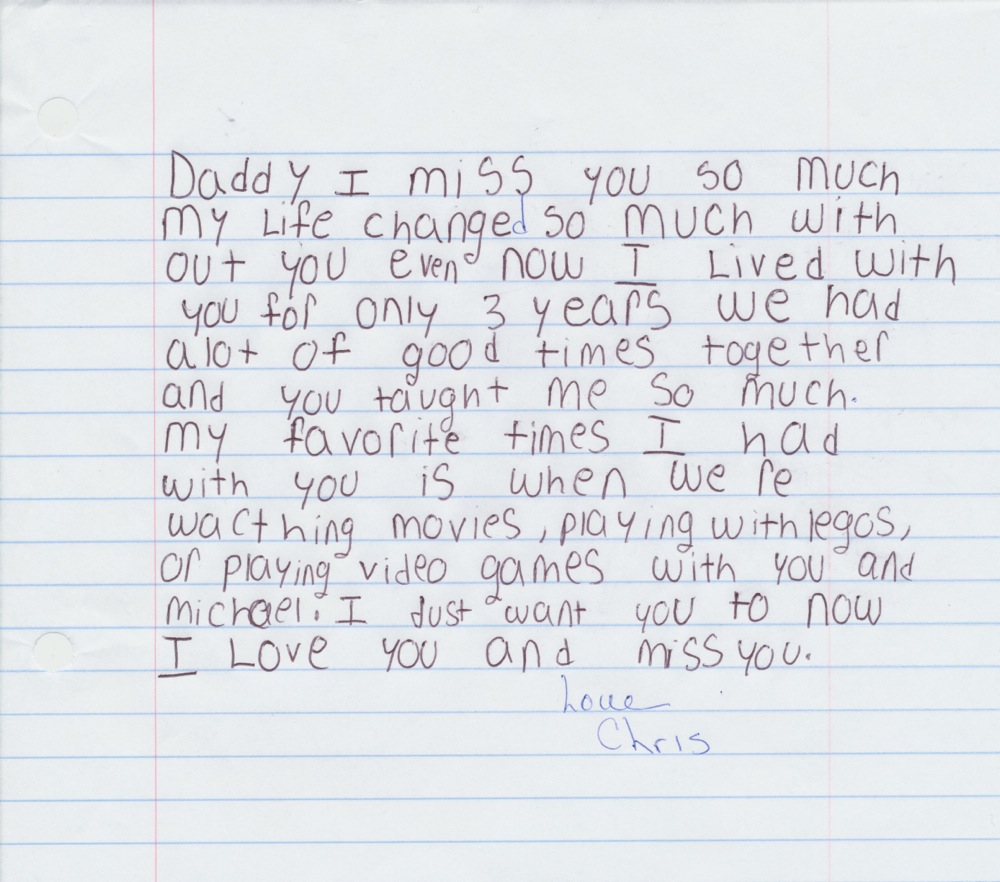 Daddy I miss you so much
my Life changed so much with
out you even now I Lived with
you for only 3 years we had
alot of good times together
and you taught me so much.
my favorite times I had
with you is when we re
wacthing movies, playing with legos,
or playing video games with you and
michael. I Just want you to now
I Love you and miss you.
Love
Chris